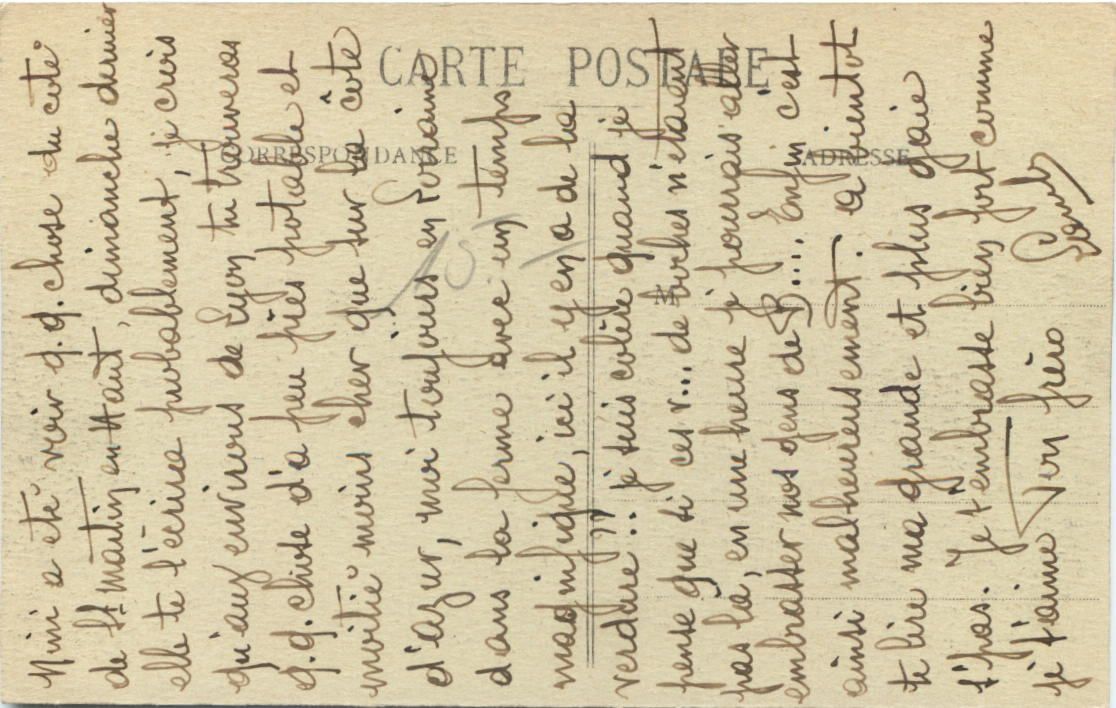 CARTE POSTALE
CORRESPONDANCE
ADRESSE
M
15
Mimi a été voir q.q. chose du côté
de St Martin en Haut, dimanche dernier
elle te l'écrira probablement, je crois
qu'aux environs de Lyon tu trouveras
q.q. chose d'à peu près potable et
moitié moins cher que sur la côte
d'azur, moi toujours en Lorraine
dans la ferme avec un temps
magnifique, ici il y en a de la
verdure !! je suis colère quand je
pense que si ces v... de boches n'étaient
pas là, en une heure je pourrais aller
embrasser nos gens de B.... Enfin c'est
ainsi malheureusement. A bientôt
te lire ma grande et plus gaie
s'pas. Je t'embrasse bien fort comme
je t'aime Ton frère